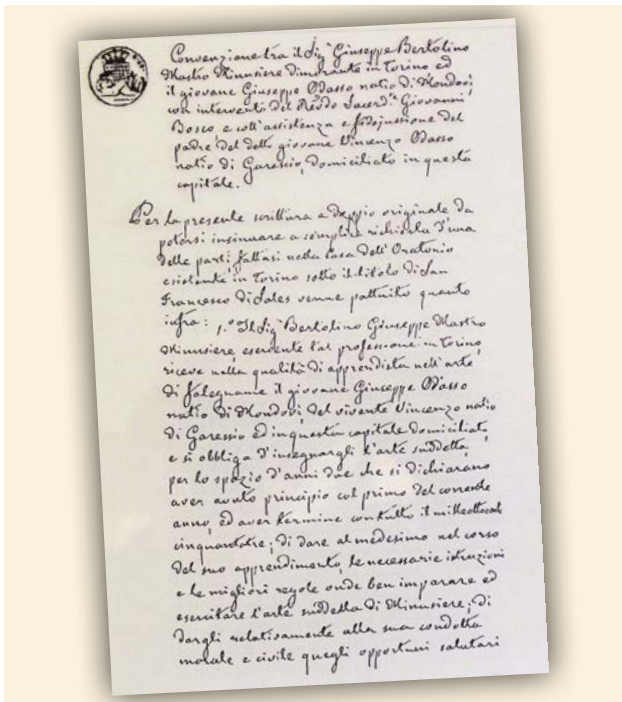 Convenzione tra il Sig.r Giuseppe Bertolino
Mastro Minusiere dimorante in Torino ed
il giovane Giuseppe Odasso natio di Mondovi,
con intervento del Revdo Sacerd.e Giovanni
Bosco, e coll'assistenza e fidejussione del
padre del detto giovane Vincenzo Odasso
natio di Garessio, domiciliato in questa
capitale.
Per la presente scrittura a doppio originale da
potersi insinuare a semplice richiesta d'una
delle parti, fattasi nella Casa dell'Oratorio
esistente in Torino sotto il titolo di San
Francesco di Sales venne pattuito quanto
infra: 1.º Il Sig.r Bertolino Giuseppe Mastro
Minusiere, esercente tal professione in Torino,
riceve nella qualità di apprendista nell'arte
di falegname il giovane Giuseppe Odasso
natio di Mondovi, del vivente Vincenzo natio
di Garessio ed in questa capitale domiciliato,
e si obbliga d'insegnargli l'arte suddetta,
per lo spazio d'anni due che si dichiarano
aver avuto principio col primo del corrente
anno, ed aver termine con tutto il milleottocento
cinquantatre; di dare al medesimo nel corso
del suo apprendimento, le necessarie istruzioni
e le migliori regole onde ben imparare ed
esercitare l'arte suddetta di Minusiere; di
dargli relativamente alla sua condotta
morale e civile quegli opportuni salutari